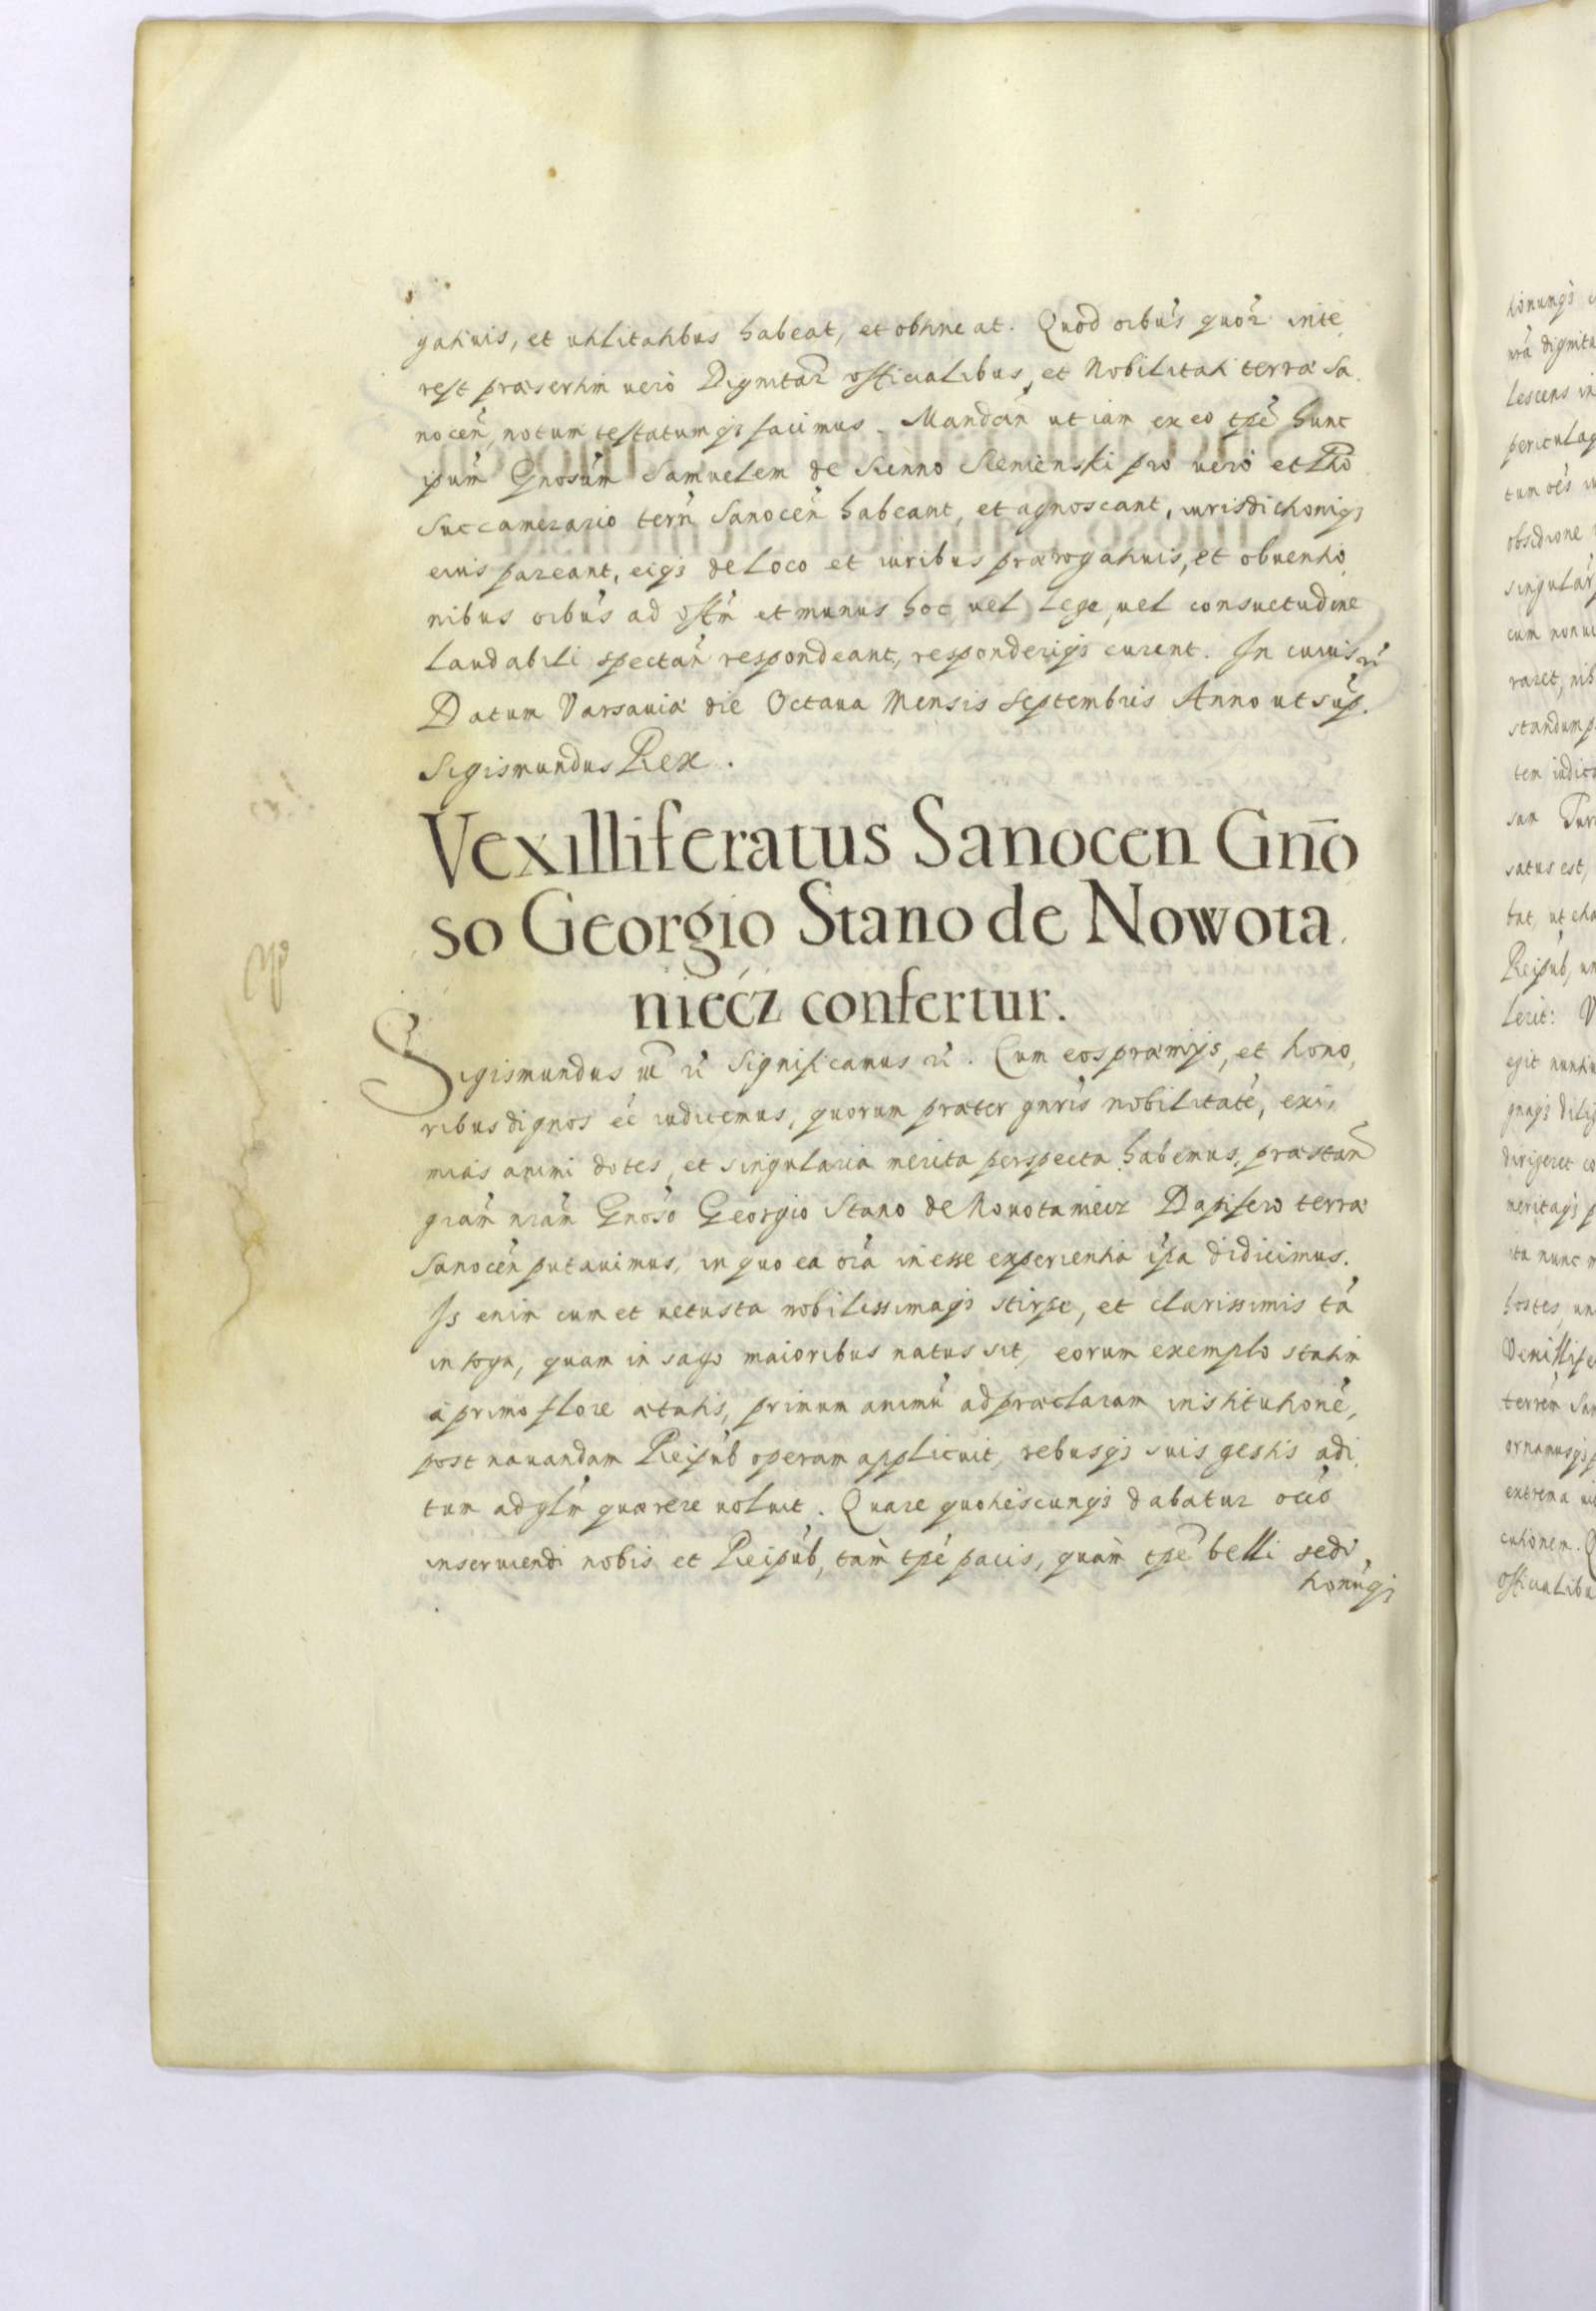 gatiuis, et utilitatibus habeat, et obtineat. Quod oībus quoꝝ inte
rest præsertim uerò Dignitaꝝ officialibus, et Nobilitati terræ Sa
nocen̄, notum testatumqꝫ facimus. Mandan̄ ut iam ex eo tpē hunc
ipūm Gnosūm Samuelem de Sienno Sienienski pro uero et Lttō
Succamerario terrn̄ Sanocen̄ habeant, et agnoscant, iurisdictioniqꝫ
eius pareant, eiqꝫ de loco et iuribus prærogatiuis, et obuentio
nibus oībus ad offm̄ et munus hoc, uel lege, uel consuetudine
laudabili spectan̄ respondeant, responderiqꝫ curent. In cuius rē
Datum Varsauiæ die Octaua Mensis Septembris Anno ut sup̄.
Sigismundus Rex.
Vexilliferatus Sanocen Gn̄o
so Georgio Stano de Nowota
niećz confertur.
Sigismundus rē significamus rē. Cum eos præmijs, et hono,
ribus dignos eē iudicemus, quorum præter gnris nobilitatē, exi,
mias animi dotes, et singularia merita perspecta habemus, præstan̄
gratiām nrām Gnoso Georgio Stano de Nouotaniecz Dapifero terræ
Sanocen̄ putauimus, in quo ea oīa inesse experientia ipa didicimus.
Is enim cum et uetusta nobilissimaqꝫ stirpe, et clarissimis tā
in toga, quam in sago maioribus natus sit, eorum exemplo statim
à primo flore ætatis, primum animū ad præclaram institutionē,
post nauandam Reipub operam applicuit, rebusqꝫ suis gestis adi,
tum ad glm̄ quærere uoluit. Quare quotiescunqꝫ dabatur occō
inseruiendi nobis et Reipub, tam̄ tpē pacis, quam̄ tpē belli sedi,
tionūqꝫ